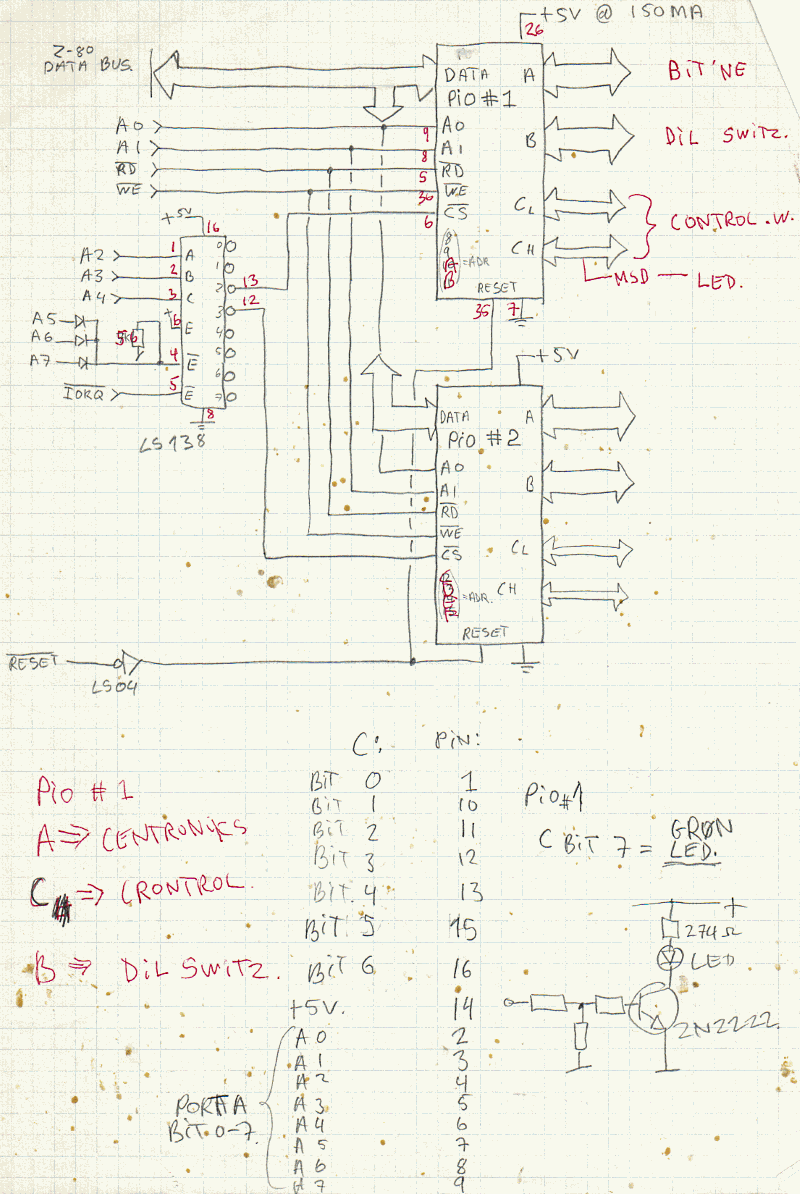 +5V @ 150MA
26
Z-80
DATA BUS.
DATA A
PiO #1
BiT'NE
B
DiL SWiTZ.
A0
9 A0
A1
8 A1
RD
5 RD
WE
36 WE
6 CS
CL
CH
CONTROL.W.
MSD — LED.
8
9
A =ADR
B
RESET
35 7
+5V
16
A2 1 A
A3 2 B
A4 3 C
A5
A6
A7
+ 6 E
4 E
IORQ 5 E
0
1
2 13
3 12
4
5
6
7
8
LS138
+5V
DATA A
PiO #2
A0
A1
B
RD
WE
CS
CL
CH
=ADR.
RESET
RESET
LS04
C: PiN:
BiT 0 1
BiT 1 10
BiT 2 11
BiT 3 12
BiT. 4 13
BiT 5 15
BiT 6 16
+5V. 14
A 0 2
A 1 3
A 2 4
A 3 5
A 4 6
A 5 7
A 6 8
A 7 9
PORT A
BiT 0-7.
PiO #1
A ⇒ CENTRONiKS
C ⇒ CRONTROL.
B ⇒ DiL SWiTZ.
PiO#1
C BiT 7 = GRØN
LED.
+
274Ω
LED
2N2222.